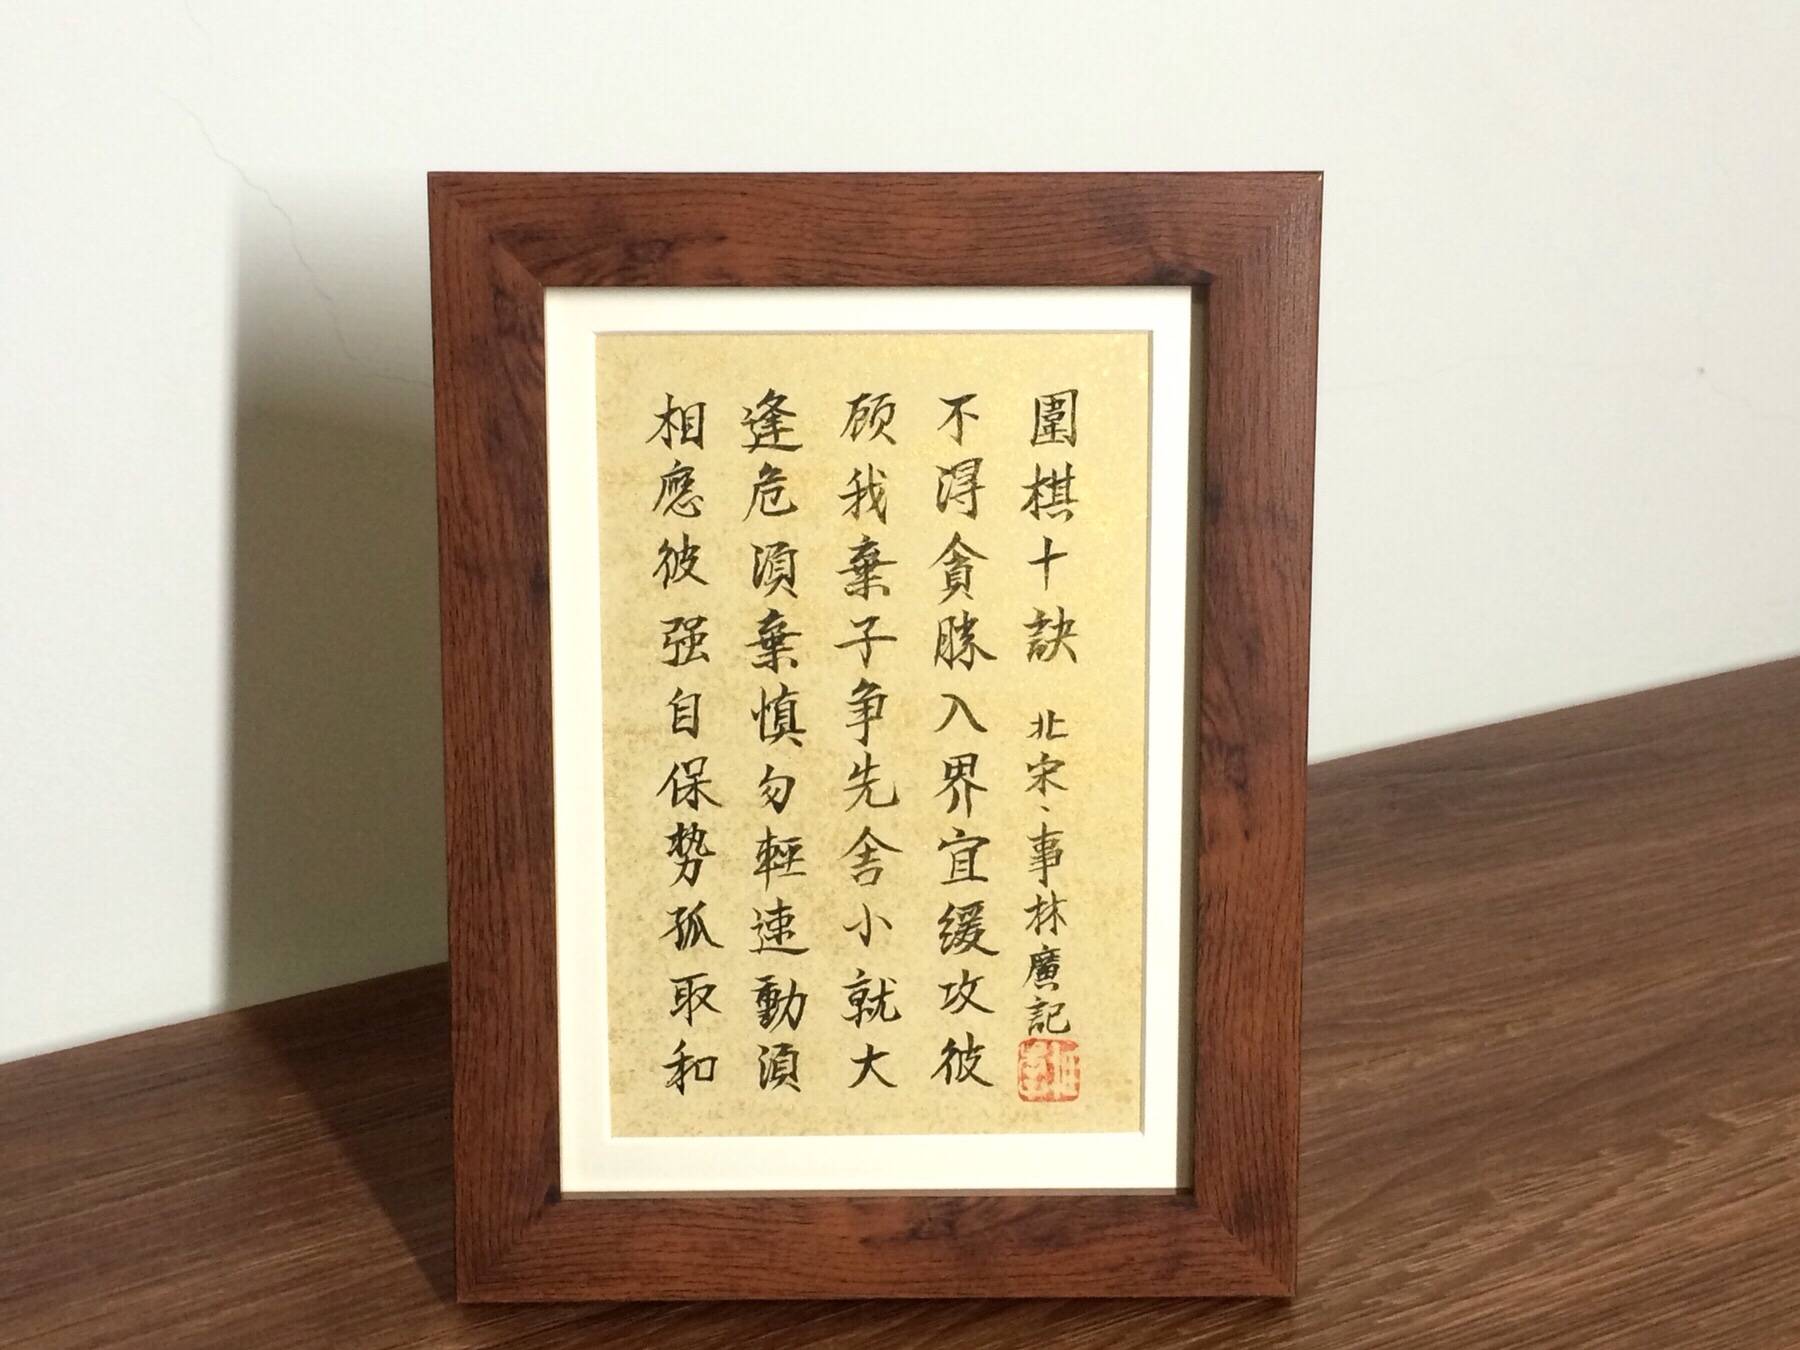 圍棋十訣 北宋、事林廣記
不得貪勝入界宜緩攻彼
顾我棄子争先舍小就大
逢危須棄慎勿輕速動須
相應彼强自保势孤取和